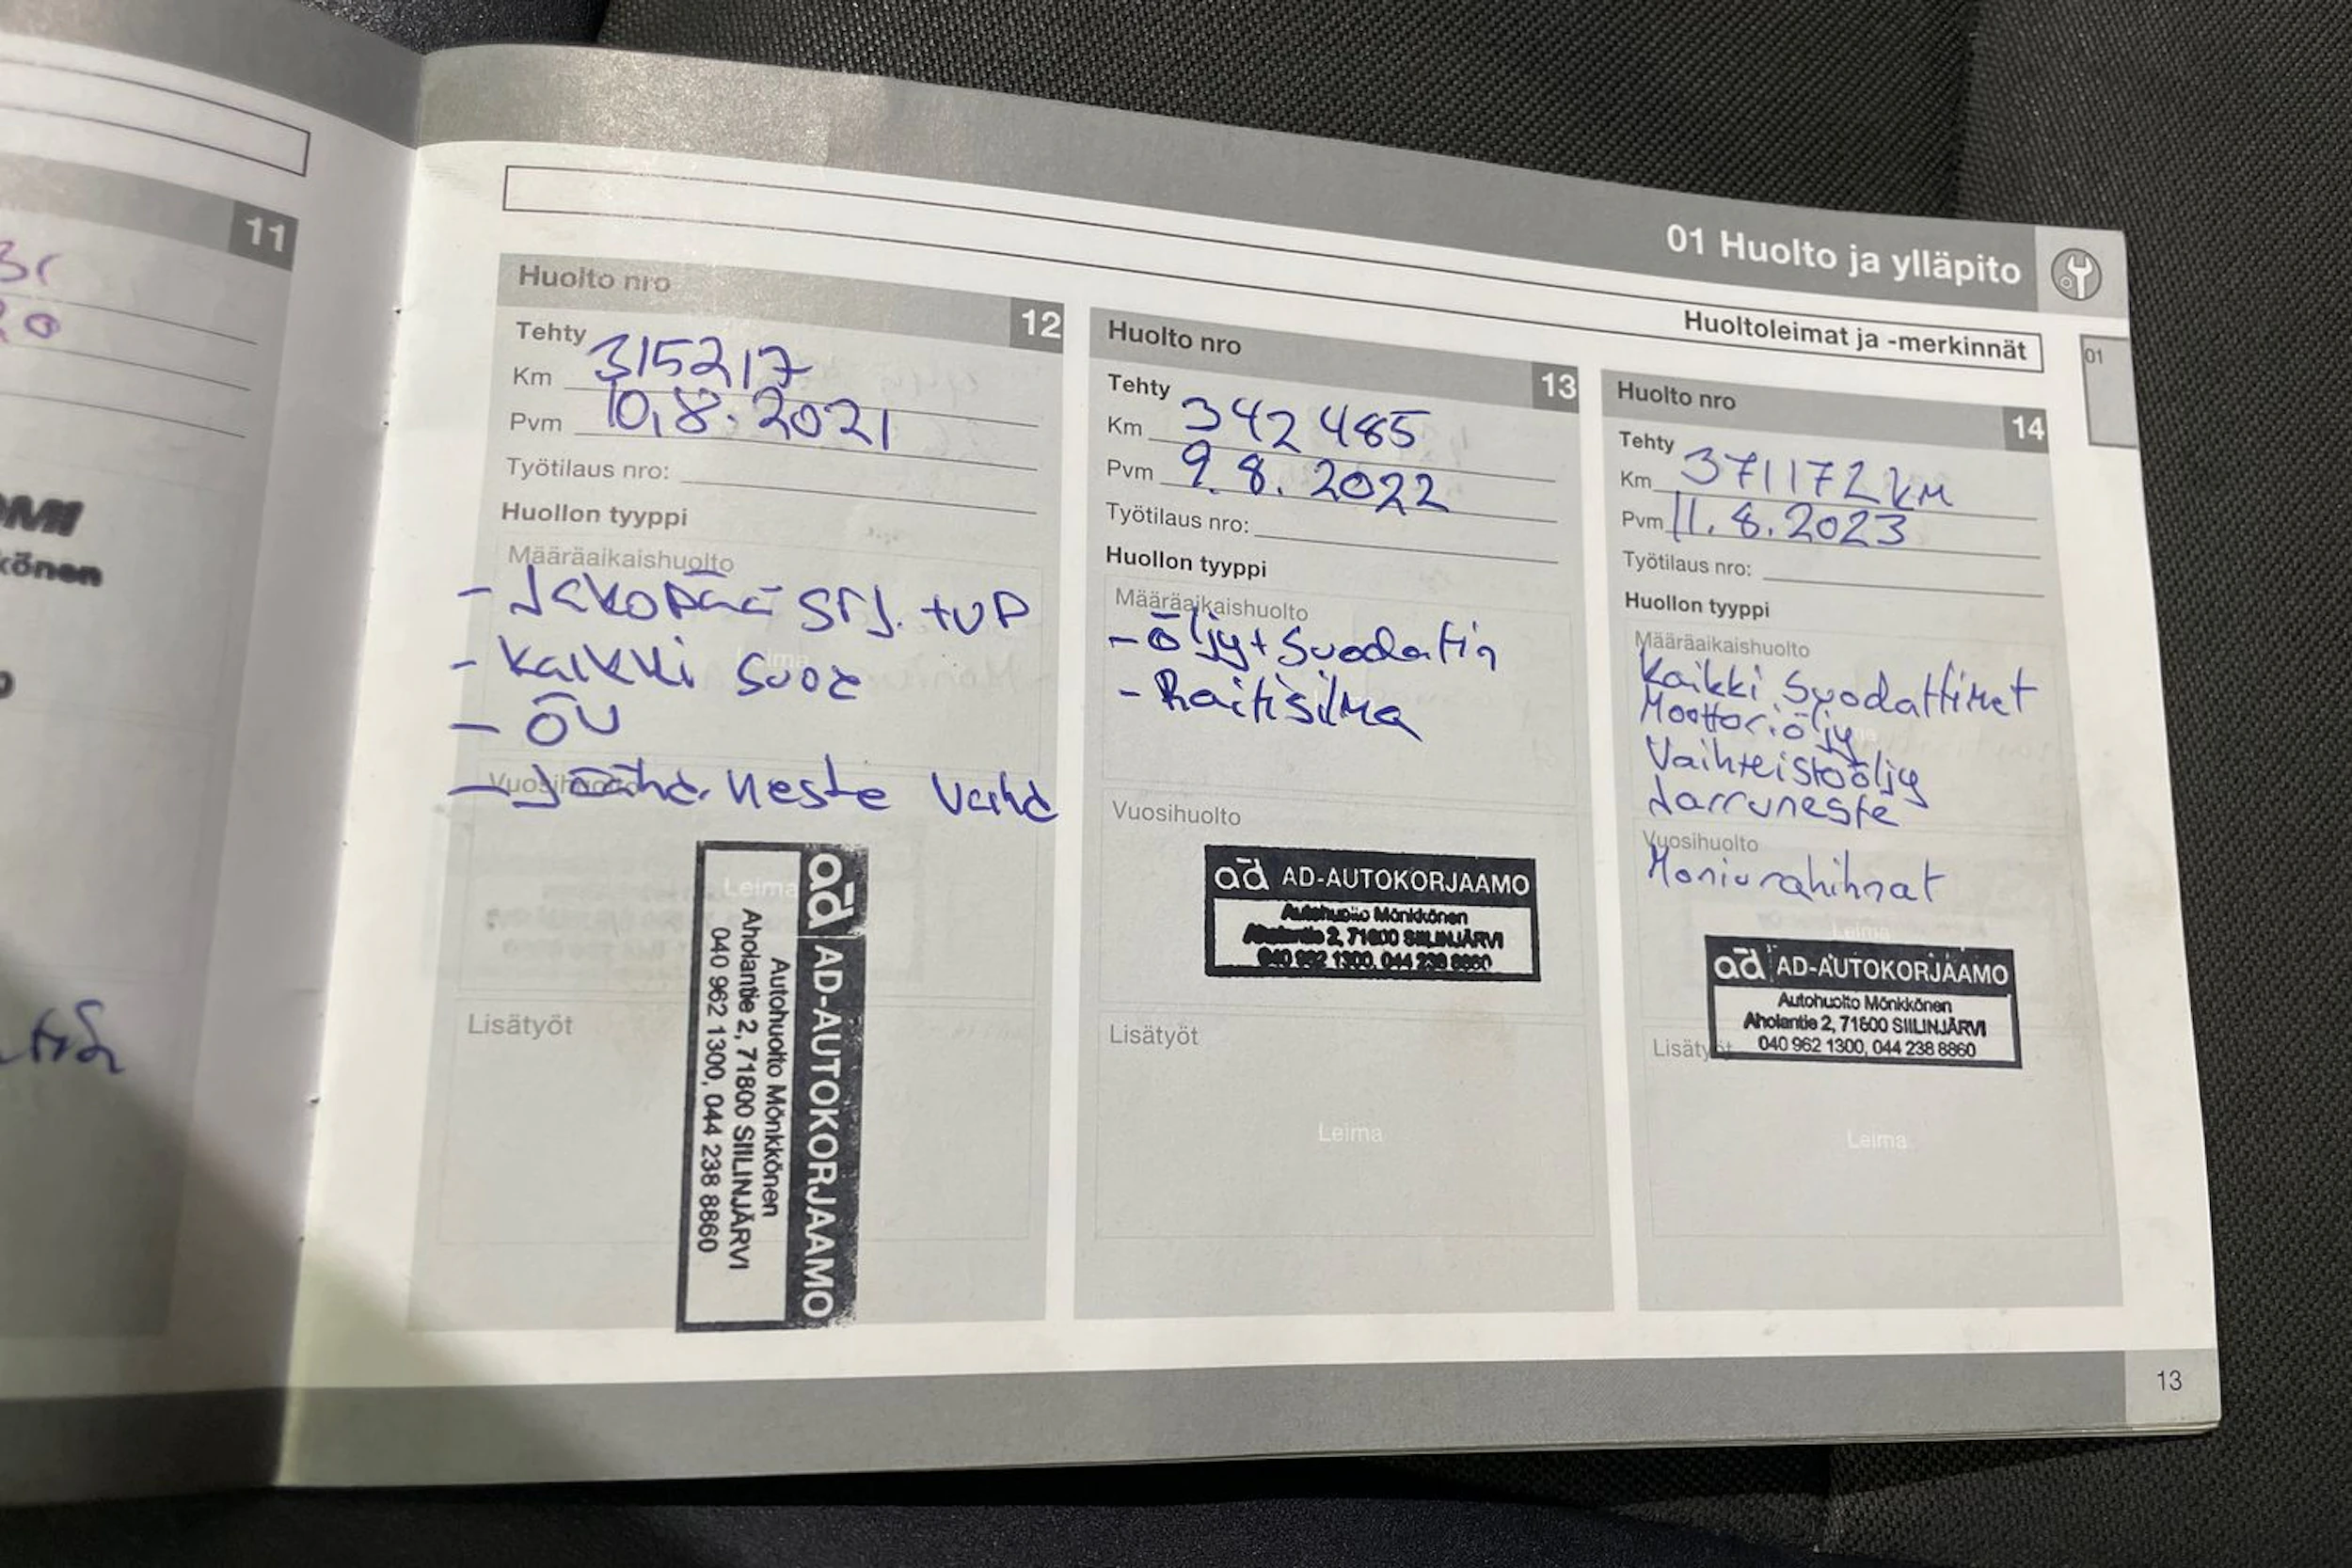 11
01 Huolto ja ylläpito
Huoltoleimat ja -merkinnät
01
Huolto nro
12
Tehty
Km 315217
Pvm 10.8.2021
Työtilaus nro:
Huollon tyyppi
Määräaikaishuolto
- Jakopää srj. + VP
- kaikki suod
- ÖV
- Jäähd. neste vaihd
Vuosihuolto
Leima
ad AD-AUTOKORJAAMO
Autohuolto Mönkkönen
Aholantie 2, 71800 SIILINJÄRVI
040 962 1300, 044 238 8860
Lisätyöt
Huolto nro
13
Tehty
Km 342 485
Pvm 9.8.2022
Työtilaus nro:
Huollon tyyppi
Määräaikaishuolto
- öljy + suodatin
- Raitisilma
Vuosihuolto
ad AD-AUTOKORJAAMO
Autohuolto Mönkkönen
Aholantie 2, 71800 SIILINJÄRVI
040 962 1300, 044 238 8860
Lisätyöt
Leima
Huolto nro
14
Tehty
Km 371172 km
Pvm 11.8.2023
Työtilaus nro:
Huollon tyyppi
Määräaikaishuolto
Kaikki suodattimet
Moottoriöljy
Vaihteistoöljy
Jarruneste
Vuosihuolto
Moniurahihnat
Leima
ad AD-AUTOKORJAAMO
Autohuolto Mönkkönen
Aholantie 2, 71800 SIILINJÄRVI
040 962 1300, 044 238 8860
Lisätyöt
Leima
13